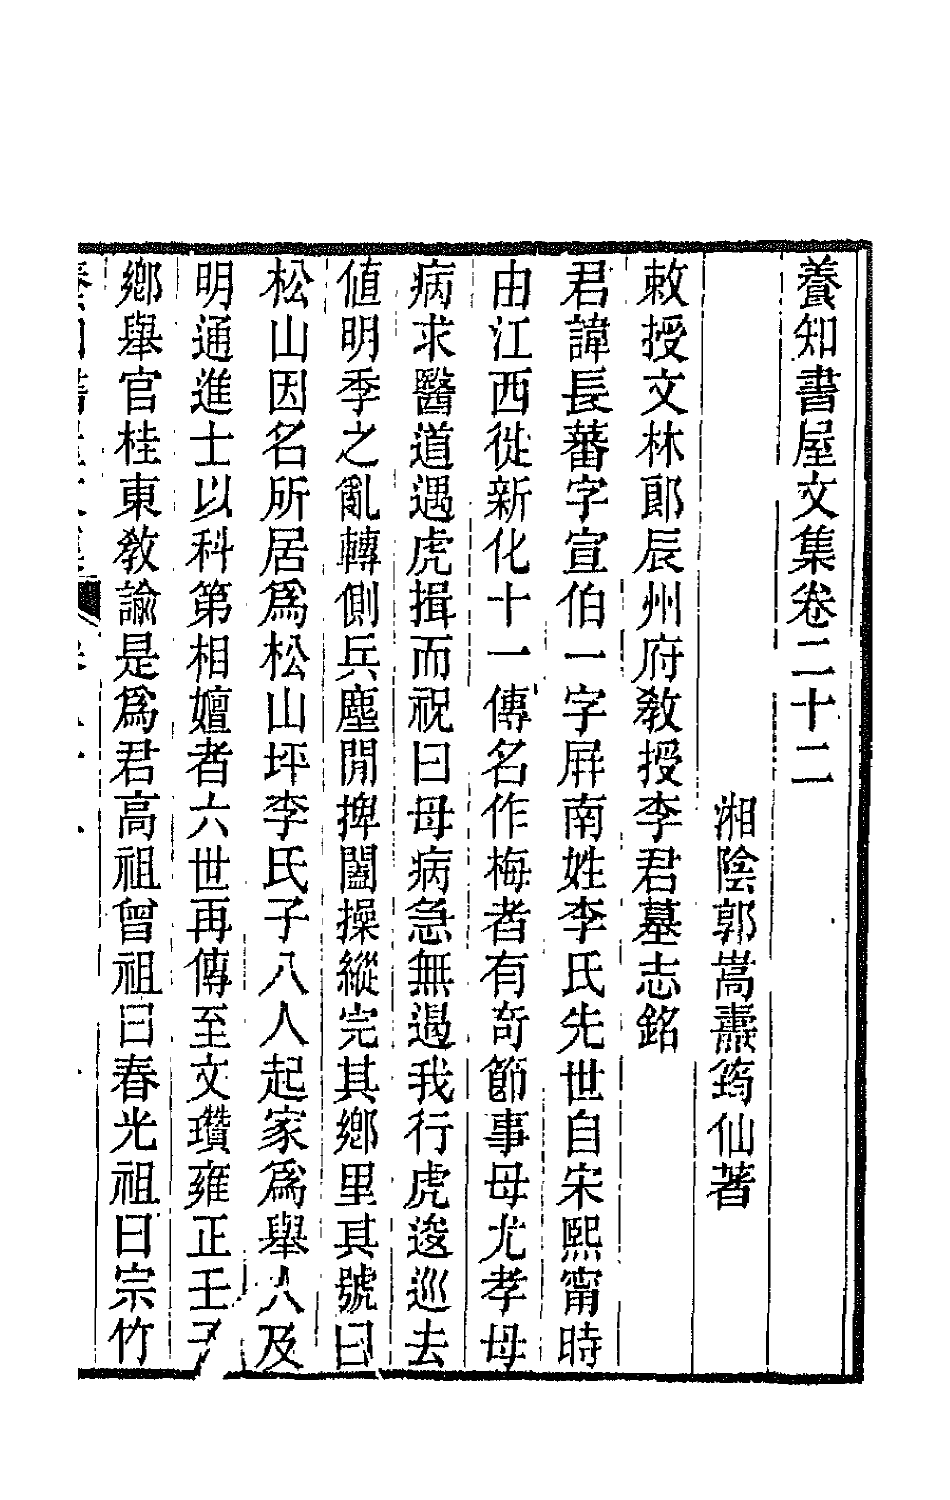 養知書屋文集卷二十二
湘陰郭嵩燾筠仙著
敕授文林郞辰州府敎授李君墓志銘
君諱長蕃字宣伯一字屛南姓李氏先世自宋熙甯時
由江西徙新化十一傳名作梅者有奇節事母尤孝母
病求醫道遇虎揖而祝曰母病急無遏我行虎逡巡去
値明季之亂轉側兵塵閒捭闔操縱完其鄕里其號曰
松山因名所居爲松山坪李氏子八人起家爲舉人及
明通進士以科第相嬗者六世再傳至文瓚雍正壬子
鄕舉官桂東敎諭是爲君高祖曾祖曰春光祖曰宗竹